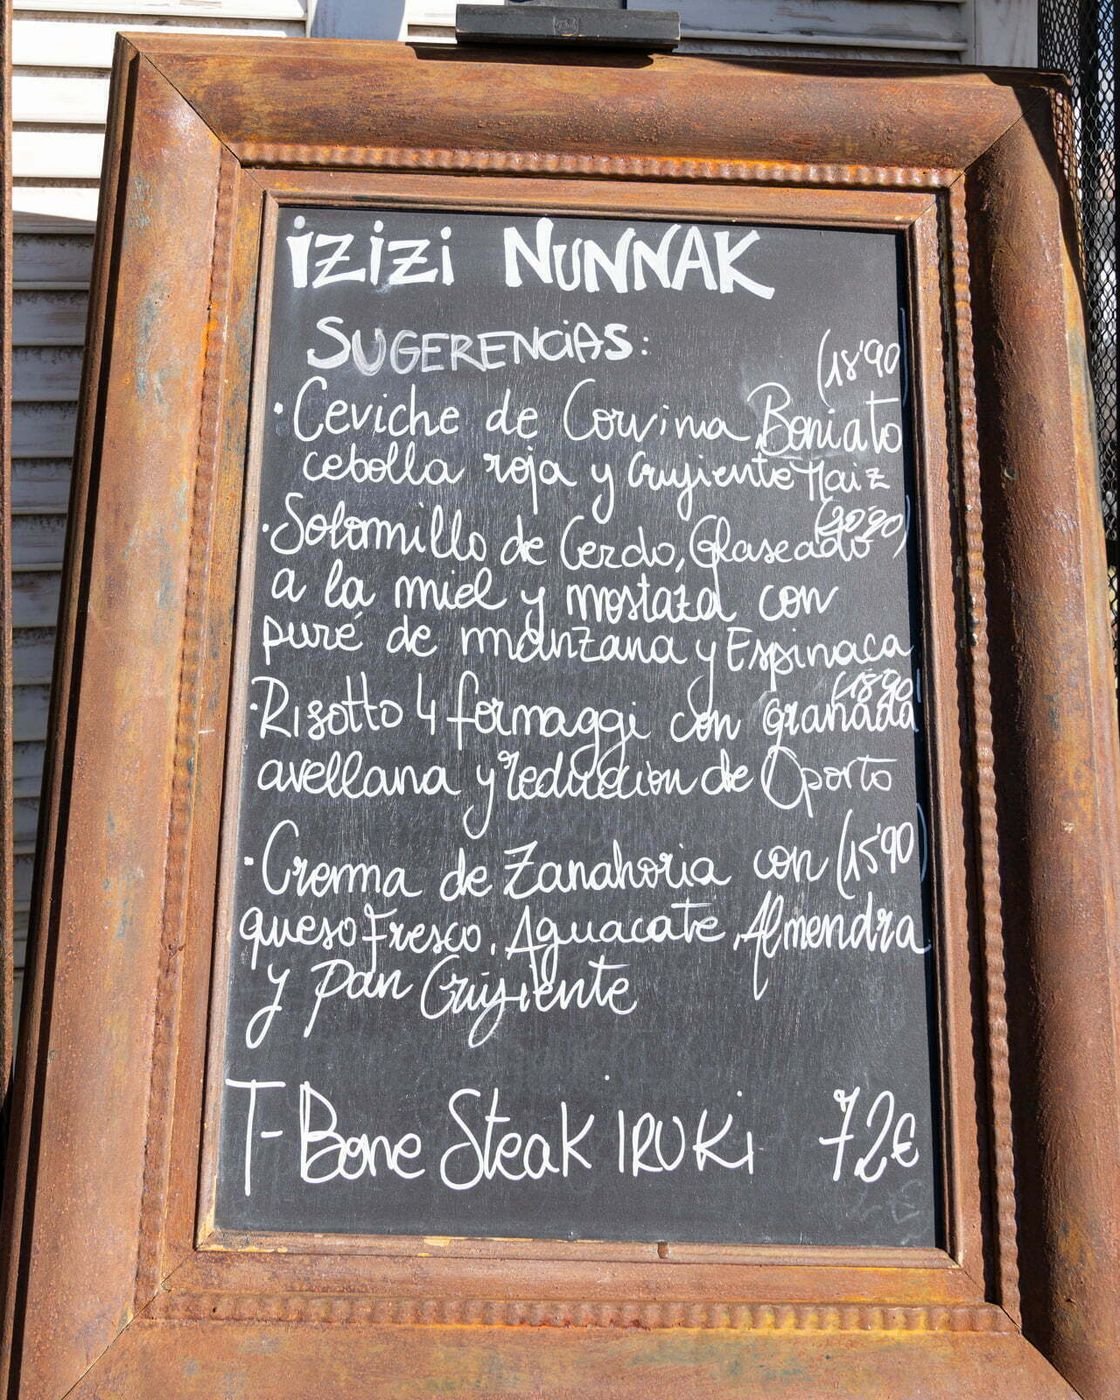 iZiZi NUNNAK
SUGERENCiAS:
(18'90
· Ceviche de Corvina, Boniato
cebolla roja y Crujiente Maiz
(20'90)
· Solomillo de Cerdo, Glaseado
a la miel y mostaza con
puré de manzana y Espinaca
(18'90
· Risotto 4 formaggi con Granada
avellana y reducción de Oporto
· Crema de Zanahoria con (15'90
queso Fresco, Aguacate, Almendra
y Pan Crujiente
T-Bone Steak IRUKi 72€